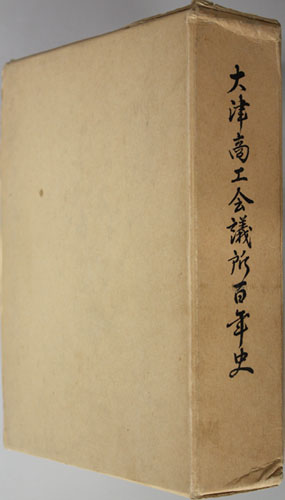 大津商工会議所百年史